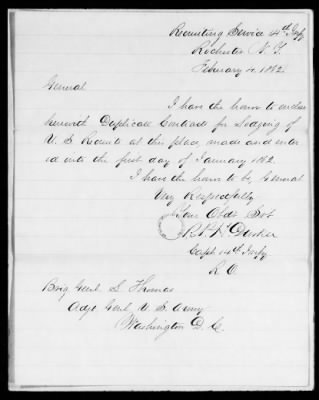 Recruiting Service 14th Infy
Rochester N. Y.
February 4. 1862.
General
I have the honor to enclose
herewith Duplicate Contracts for Lodging of
U S Recruits at this place made and enter
ed into the first day of January 1862.
I have the honor to be General
Very Respectfully
Your Obdt Svt
Capt 14th Infy
R. O.
Brig Genl L Thomas
Adjt Genl U. S. Army
Washington D. C.